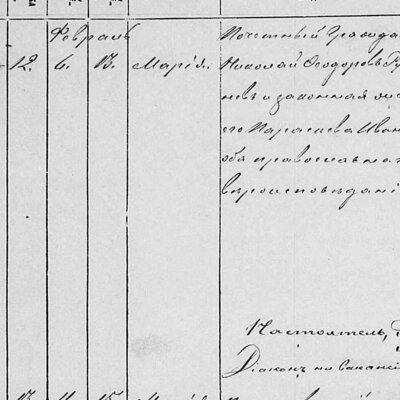 Февраль
12. 6. 13. Марія.
Почетный Гражда
Николай Ѳеодоровъ Гу
невъ и законная
его Параскева Иван
оба православна
вѣроисповѣдані
Настоятель,
Діаконъ на вакансі